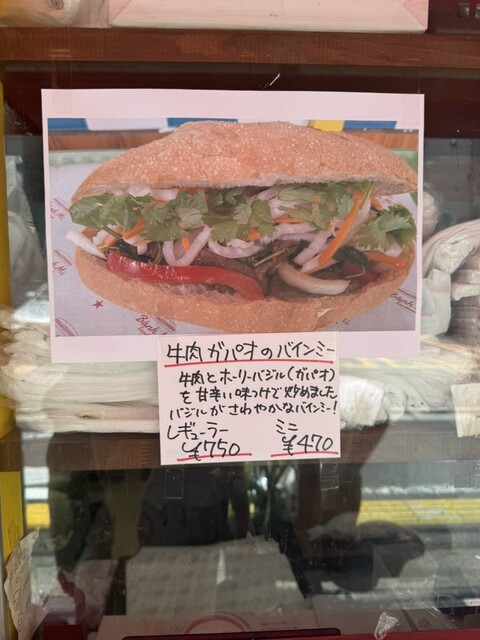 牛肉ガパオのバインミー
牛肉とホーリーバジル(ガパオ)
を甘辛い味つけで炒めました
バジルがさわやかなバインミー!
レギュラー ミニ
¥750 ¥470